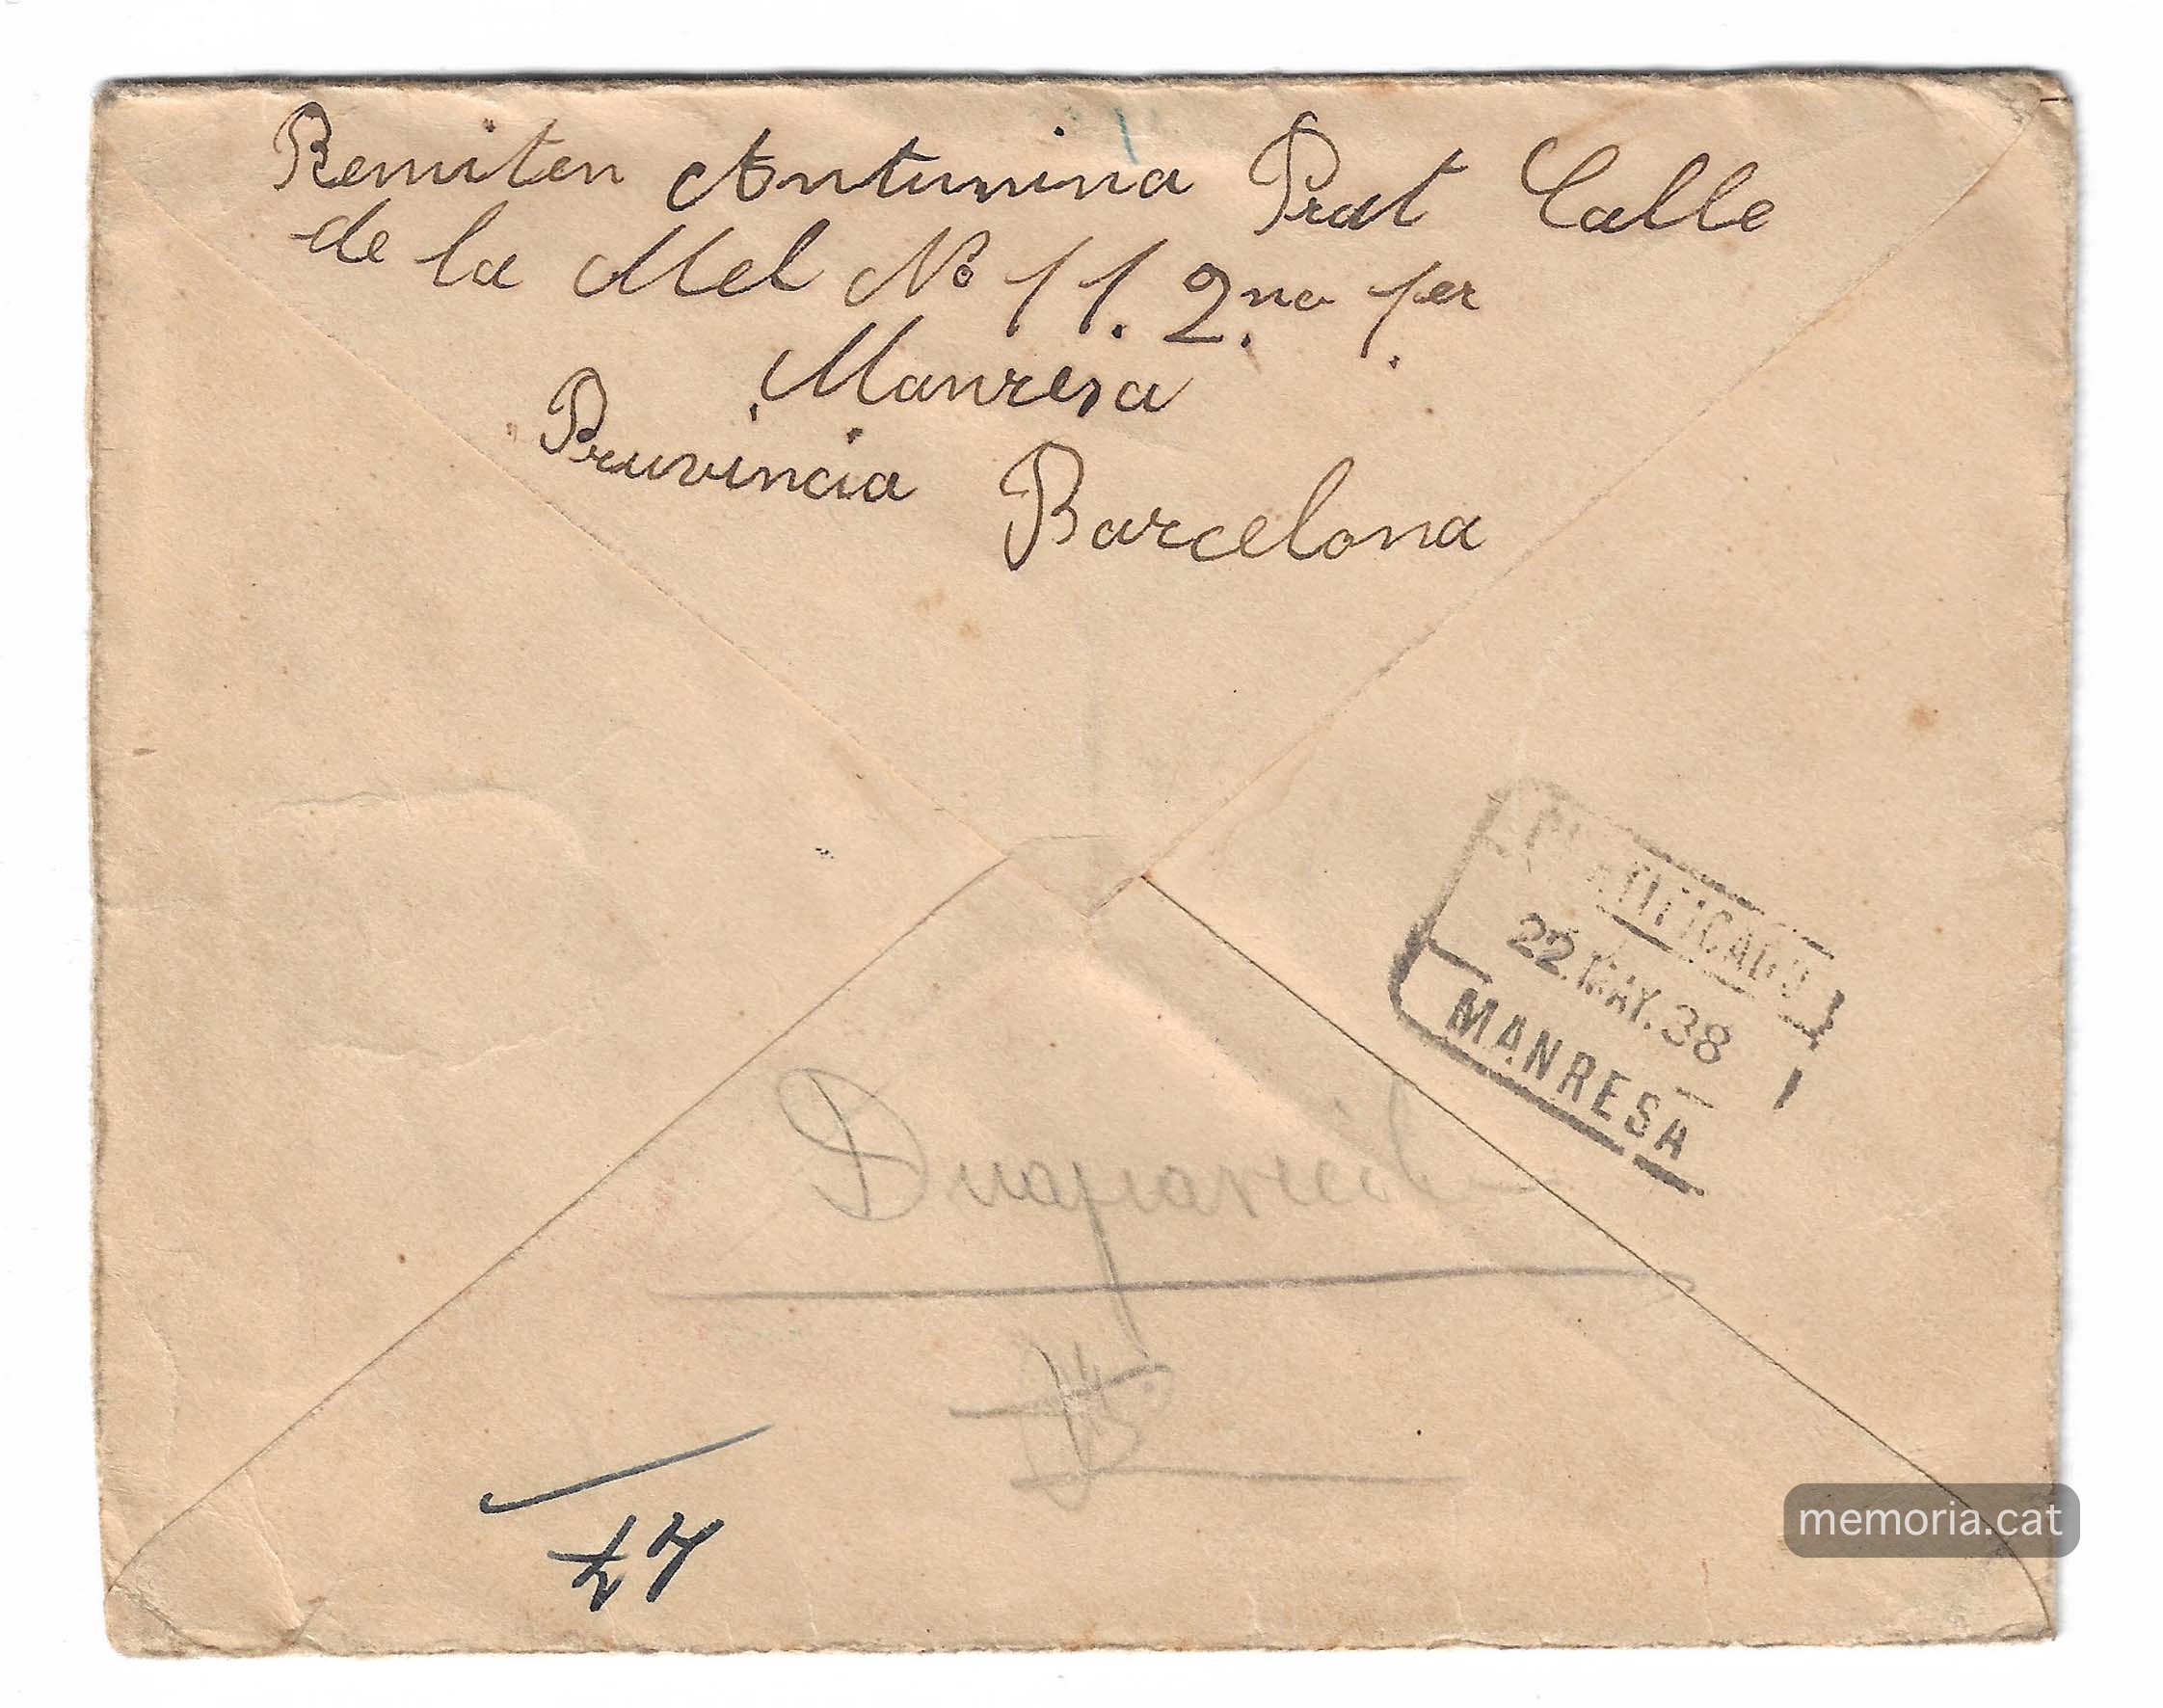 Remiten Antunina Prat Calle
de la Mel Nº 11. 2na 1er
Manresa
Pruvincia Barcelona
CERTIFICADO
22 MAY. 38
MANRESA
47
memoria.cat